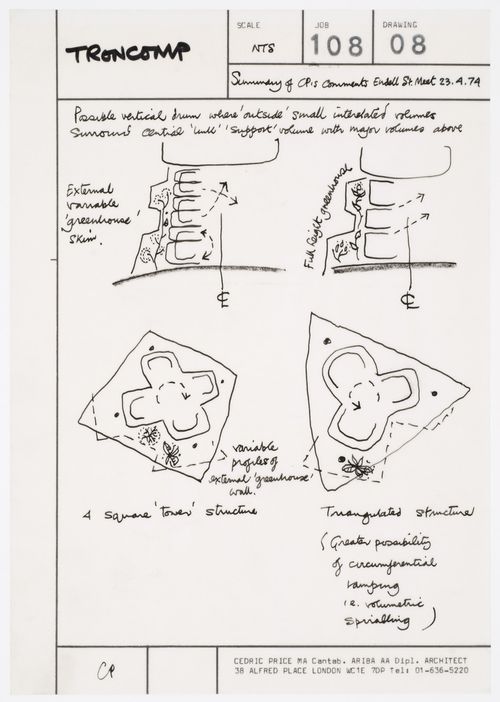 TRONCOMP
SCALE
NTS
JOB
108
DRAWING
08
Summary of CP's Comments Endell St. Meet 23.4.74
Possible vertical drum where 'outside' small interelated volumes
Surround central 'support' volume with major volumes above
External
variable
'greenhouse'
skin.
Full height greenhouse
CL
CL
variable
profiles of
external 'greenhouse'
wall.
4 square 'tower' structure
Triangulated structure
(Greater possibility
of circumferential
ramping
i.e. volumetric
spiralling)
CP
CEDRIC PRICE MA Cantab. ARIBA AA Dipl. ARCHITECT
38 ALFRED PLACE LONDON WC1E 7DP Tel: 01-636-5220